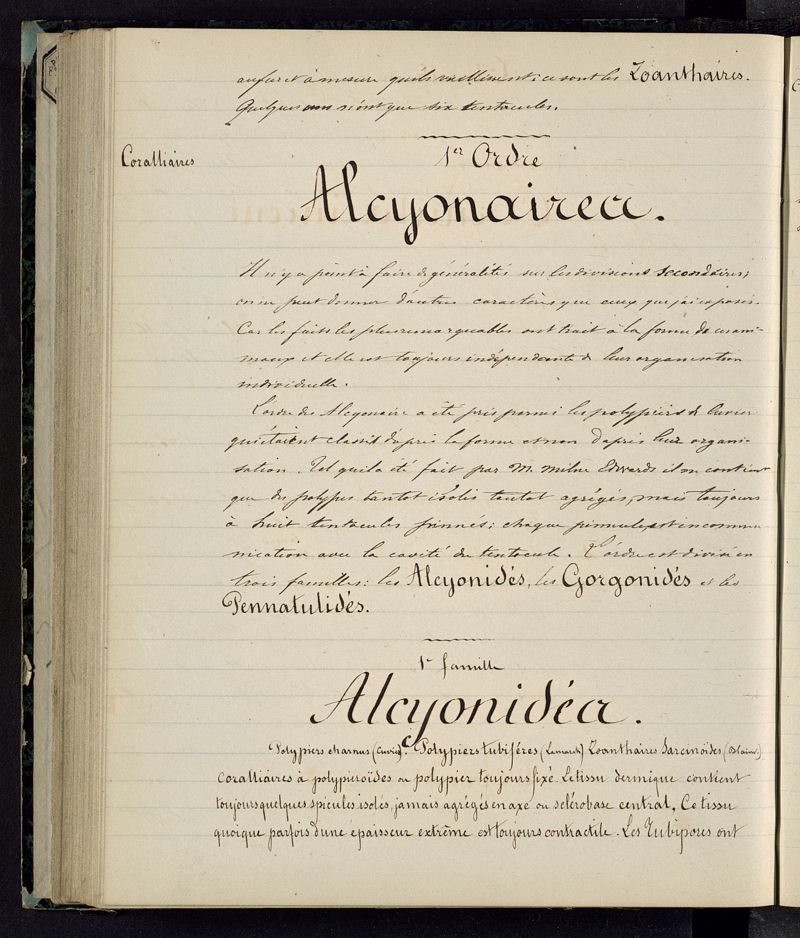 au fur et à mesure qu'ils vieillissent: ce sont les Zoanthaires.
Quelques uns n'ont que six tentacules.
Coralliaires
1er Ordre
Alcyonairea.
Il n'y a point à faire de généralités sur les divisions secondaires;
on ne peut donner d'autres caractères que ceux que j'ai exposés.
Car les faits les plus remarquables ont trait à la forme de ces ani-
maux et elle est toujours indépendante de leur organisation
individuelle.
L'ordre des Alcyonaire a été pris parmi les polypiers de Cuvier
qui étaient classés d'après la forme et non d'après leur organi-
sation. Tel qu'il a été fait par M. Milne Edwards il ne contient
que des polypes tantot isolés tantot agrégés, mais toujours
à huit tentacules pinnés; chaque pinnule est en commu-
nication avec la cavité du tentacule. L'ordre est divisé en
trois familles: les Alcyonidés, les Gorgonidés et les
Pennatulidés.
1e famille
Alcyonidéa.
Polypiers charnus (Cuvier). Polypiers tubifères (Lamarck) Zoanthaires Sarcinoïdes (Blainv.)
Coralliaires à polypieroïdes ou polypier toujours fixé. Le tissu dermique contient
toujours quelques spicules isolés, jamais agrégés en axe ou sclérobase central, Ce tissu
quoique parfois d'une épaisseur extrême est toujours contractile. Les Tubipores ont